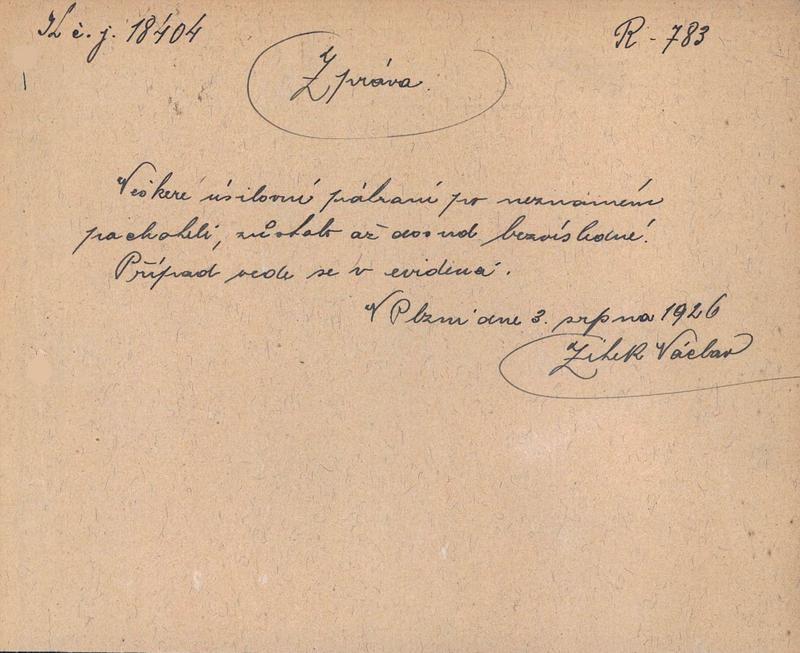 K č. j. 18404
R - 783
Zpráva.
Veškeré úsilovní pátraní po neznámém
pachateli, zůstalo až dosud bezvísledné.
Případ vede se v evidenci.
V Plzni dne 3. srpna 1926
Zítek Václav